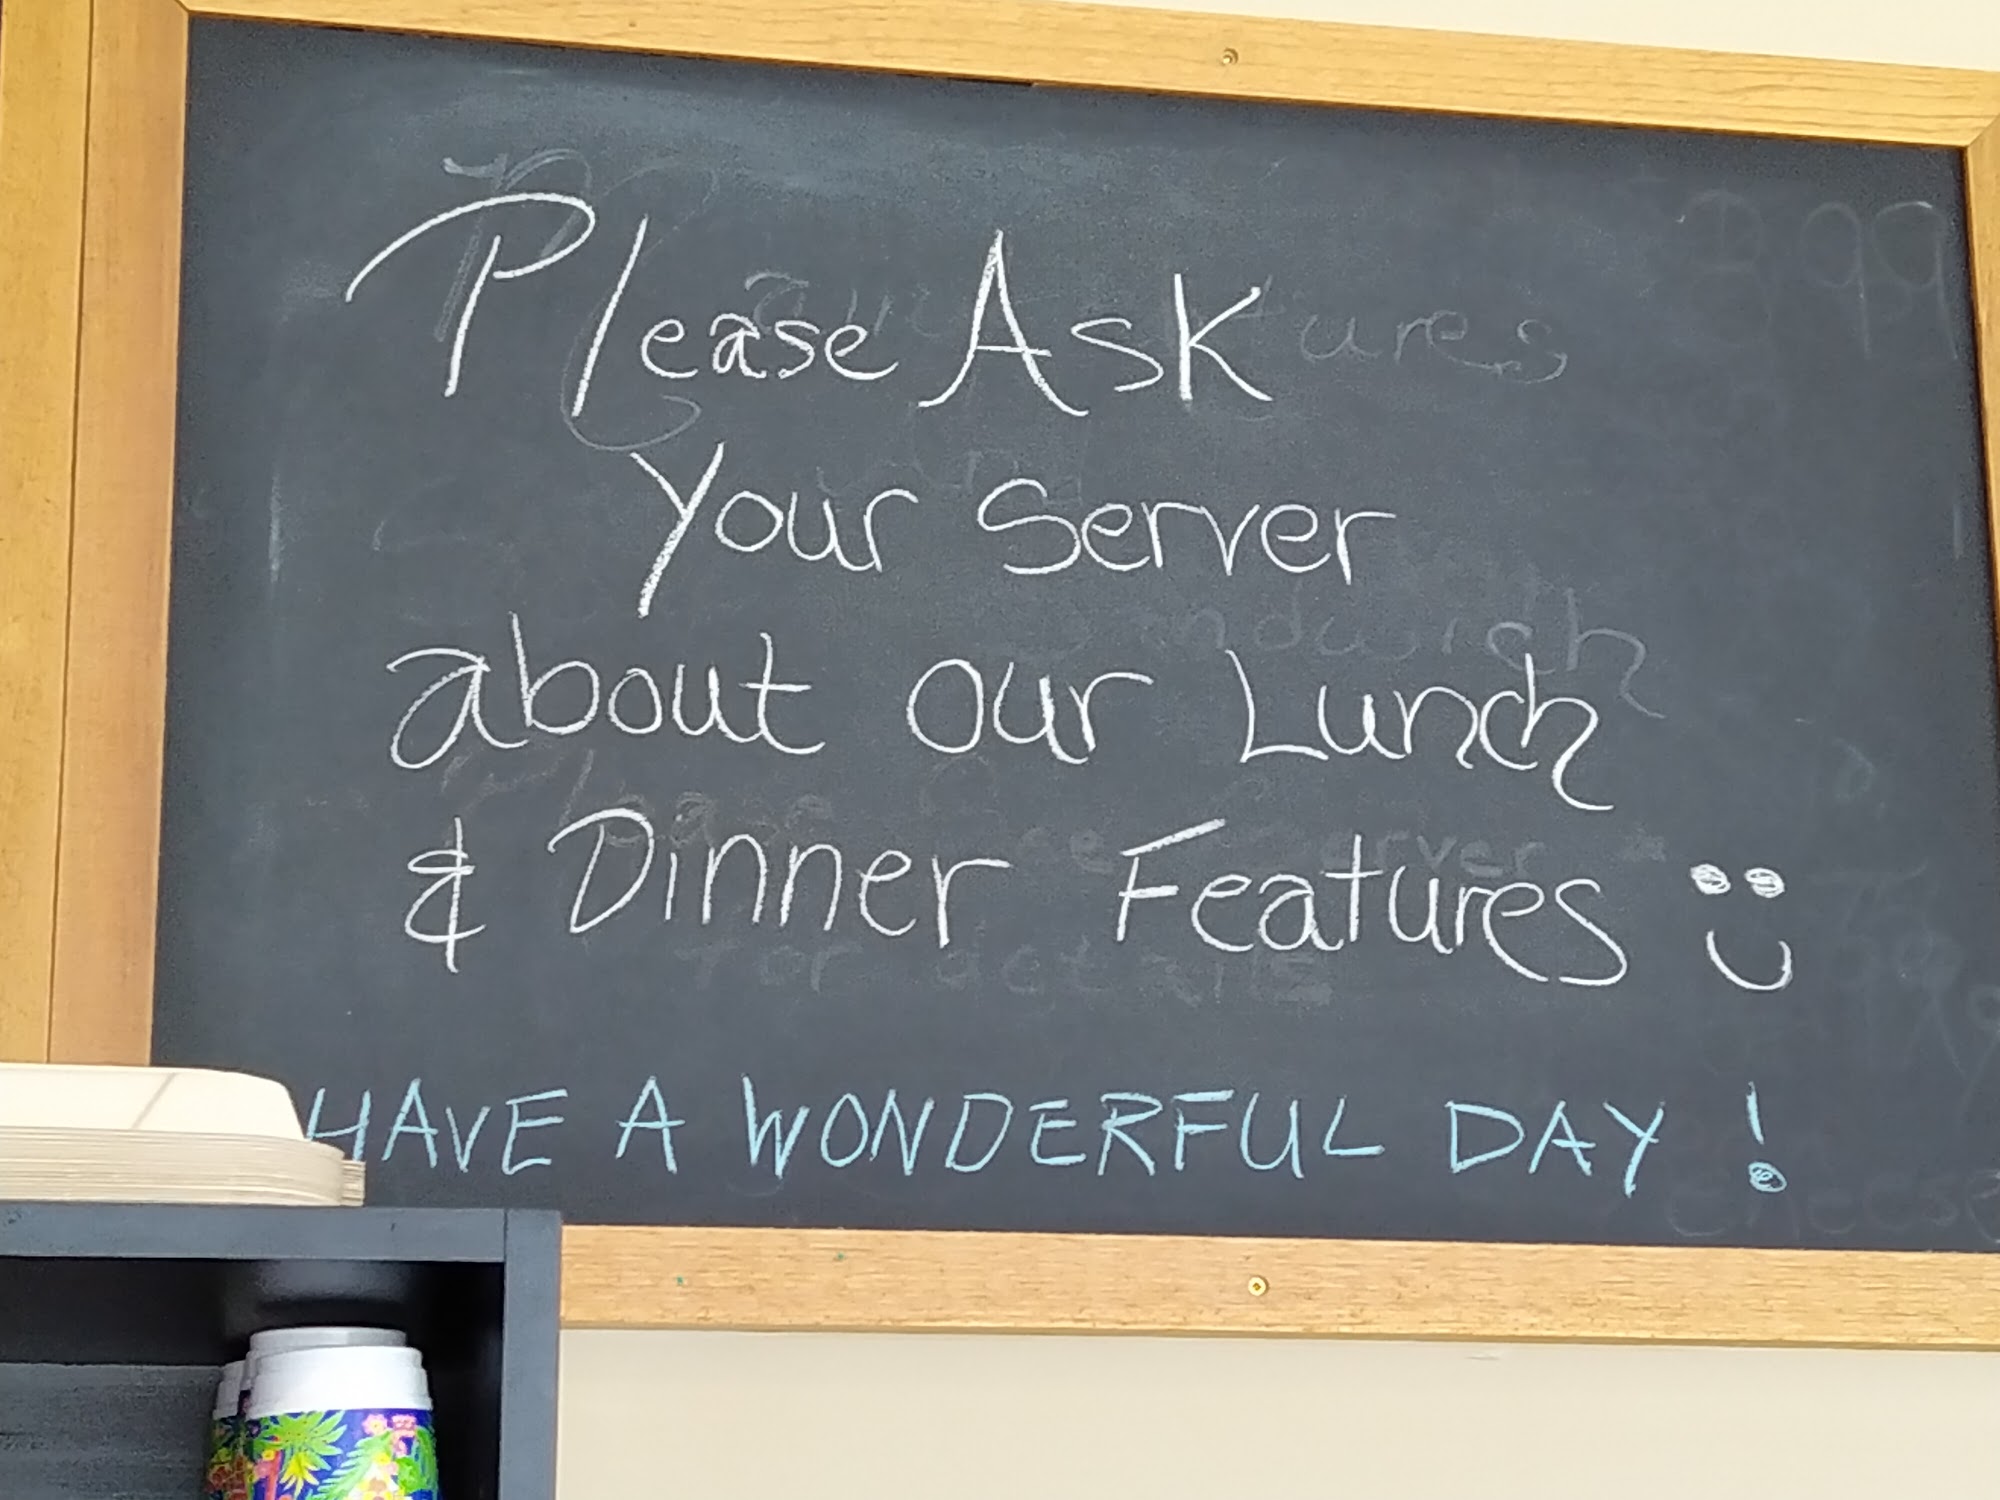 Please Ask
Your Server
about our Lunch
& Dinner Features
HAVE A WONDERFUL DAY !